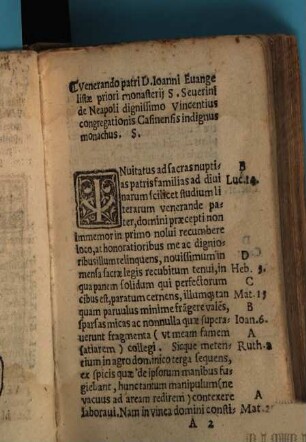 Venerando patri D. Ioanni Euange
listæ priori monasterij S. Seuerini
de Neapoli dignissimo Vincentius
congregationis Casinensis indignus
monachus. S.
INuitatus ad sacras nupti- B
as patrisfamilias ad diui Luc.14.
narum scilicet studium li
terarum venerande pa-
ter, domini præcepti non
immemor in primo nolui recumbere
loco, at honoratioribus me ac dignio-
ribus illum relinquens, nouissimum in D
mensa sacræ legis recubitum tenui, in Heb. 5.
qua panem solidum qui perfectorum C
cibus est, paratum cernens, illumq; tan Mat.15
quam paruulus minime frãgere valẽs, B
sparsas micas ac nonnulla quæ supera- Ioan.6.
uerunt fragmenta ( vt meam famem A
satiarem ) collegi. Sicque meten- Ruth.2
tium in agro dominico terga sequens,
ex spicis quæ de ipsorum manibus fu-
giebant, hunc tantum manipulum ( ne
vacuus ad aream redirem ) contexere A
laboraui. Nam in vinea domini consti Mat.2
A 2